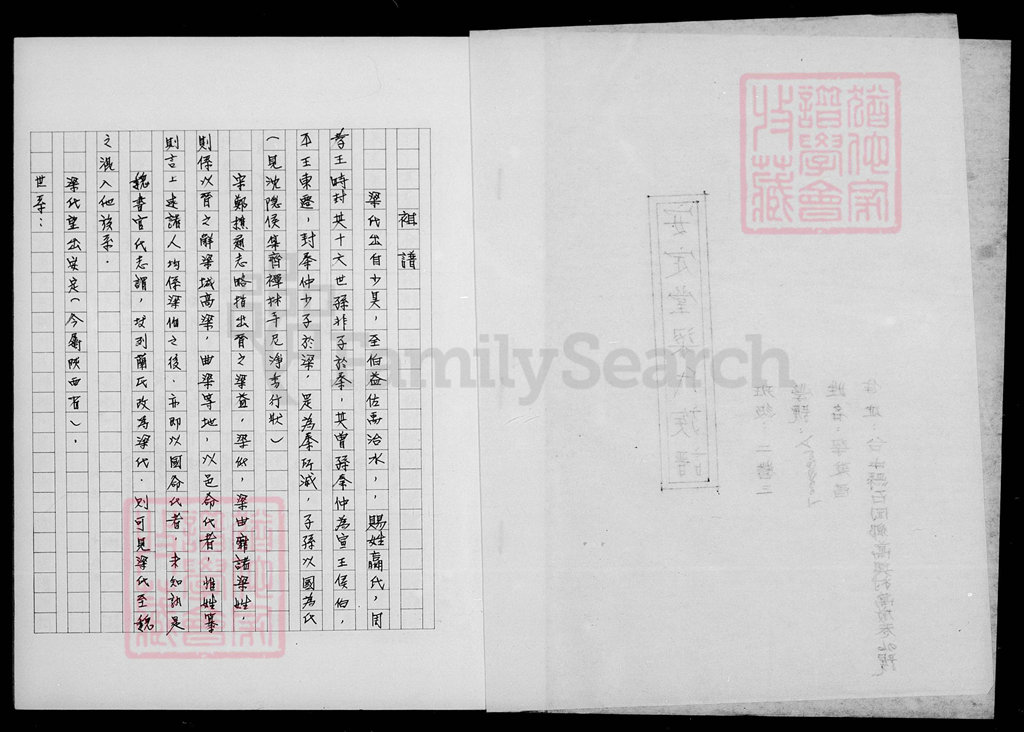 祖譜
梁代出自少昊，至伯益佐禹治水，，賜姓嬴氏，周
孝王時封其十六世孫非子於秦，其曾孫秦仲為宣王侯伯，
平王東遷，封秦仲少子於梁，是為秦所滅，子孫以國為氏
（見沈隱侯集齊禪林寺尼淨秀行狀）
宋鄭樵通志略指出晉之梁益，梁 ，梁由靡諸梁姓，
則係以晉之解梁城高梁，曲梁等地，以邑命代者，惟姓纂
則言上述諸人均係梁伯之後．亦即以國命代者，未知訥是
魏書官代志謂，拔列蘭氏改為梁代．則可見梁代至魏
之混入他族系．
梁代望出安定（今屬陝西省）．
世系：
安定堂梁公族譜
FamilySearch